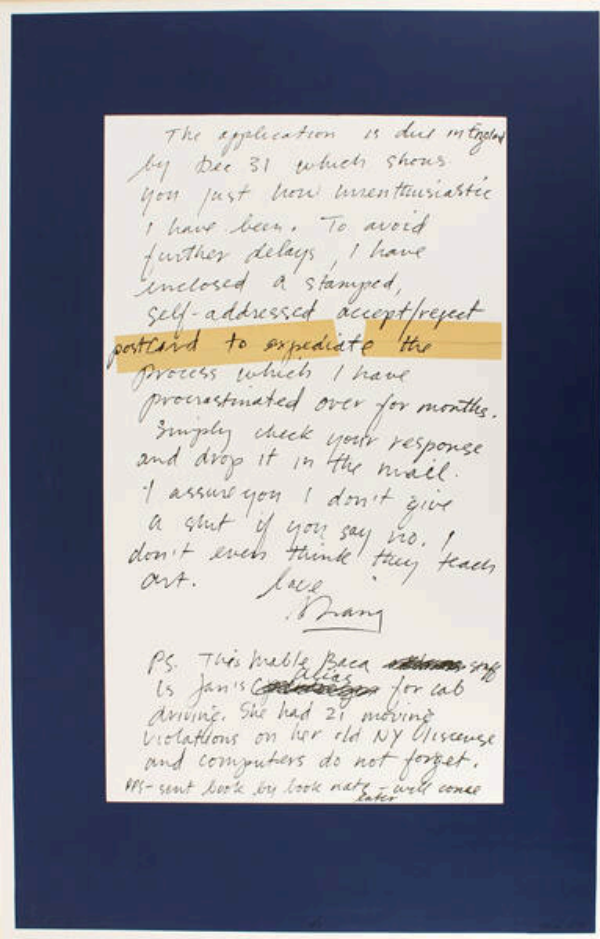 The application is due in England
by Dec 31 which shows
you just how unenthusiastic
I have been. To avoid
further delays, I have
enclosed a stamped,
self-addressed accept/reject
postcard to expediate the
process which I have
procrastinated over for months.
Simply check your response
and drop it in the mail.
I assure you I don't give
a shit if you say no. I
don't even think they teach
art.
love
PS. This Mable Baca stuff
is Jan's alias for cab
driving. She had 21 moving
violations on her old NY liscense
and computers do not forget.
PPS- sent book by book rate - will come
later